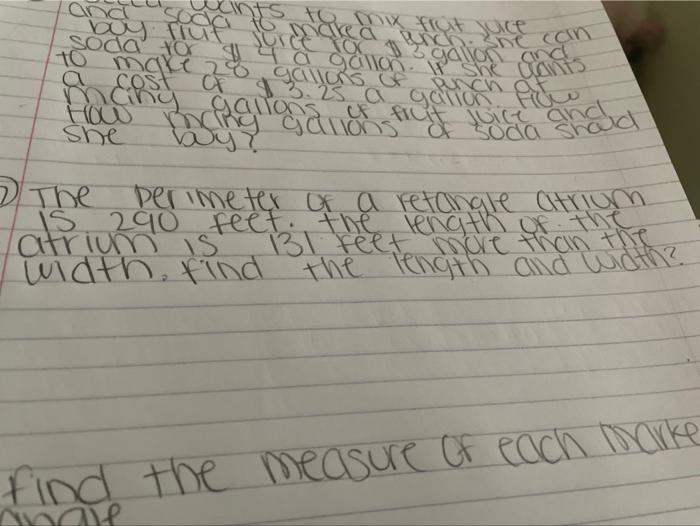 wants to mix fruit juice
and soda to maked punch. she can
boy fruit juice for $3 gallon and
soda for $4 a gallon. If she wants
to make 28 gallons of punch at
a cost of $3.25 a gallon. How
many gallons of fruit juice and
How many gallons of soda should
she boy?
The perimeter of a retangle atrium
is 290 feet. the length of the
atrium is 131 feet more than the
width. find the length and width?
find the measure of each marke
angle